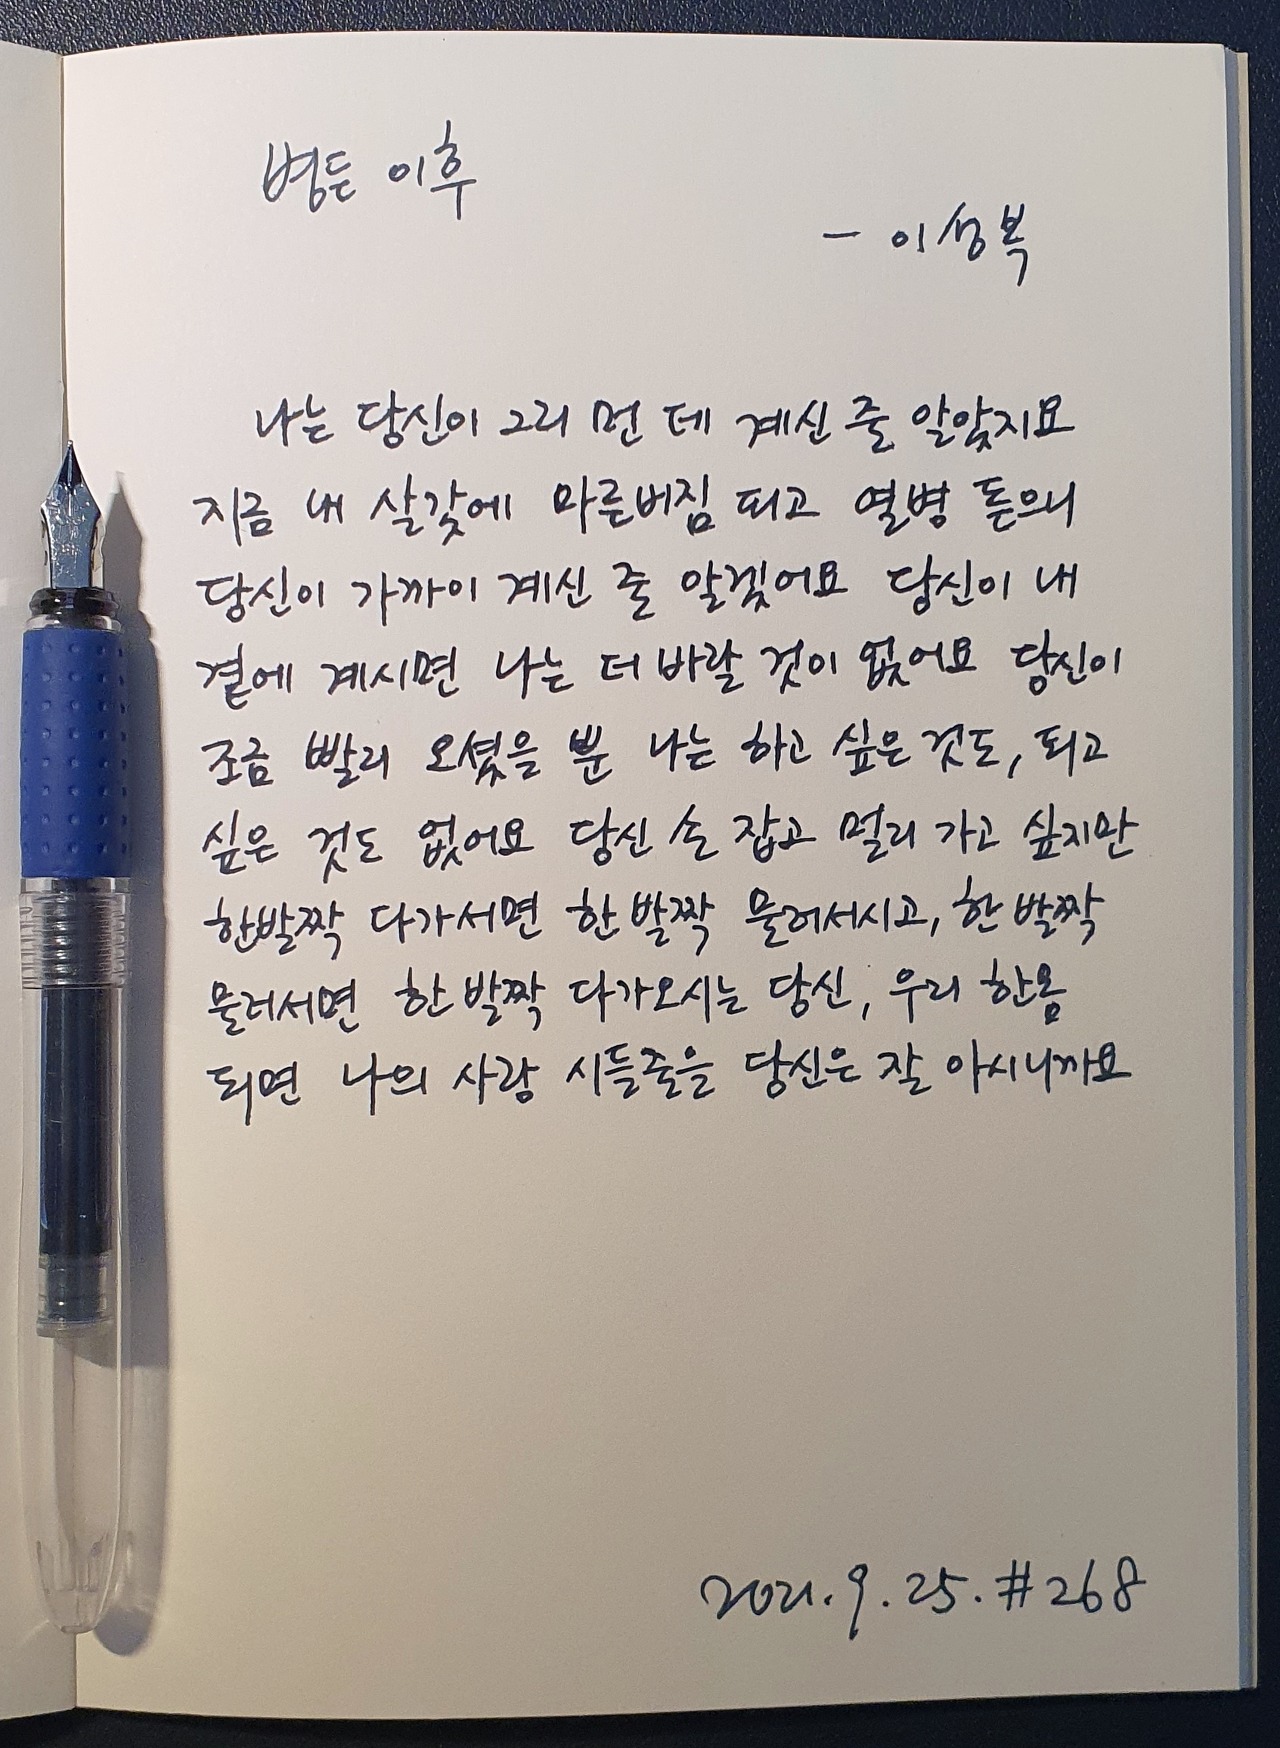 병든 이후
- 이성복
나는 당신이 그리 먼 데 계신 줄 알았지요
지금 내 살갗에 마른버짐 피고 열병 돋으니
당신이 가까이 계신 줄 알겠어요 당신이 내
곁에 계시면 나는 더 바랄 것이 없어요 당신이
조금 빨리 오셨을 뿐 나는 하고 싶은 것도, 되고
싶은 것도 없어요 당신 손 잡고 멀리 가고 싶지만
한발짝 다가서면 한 발짝 물러서시고, 한 발짝
물러서면 한 발짝 다가오시는 당신, 우리 한몸
되면 나의 사랑 시들줄을 당신은 잘 아시니까요
2021. 9. 25. #268